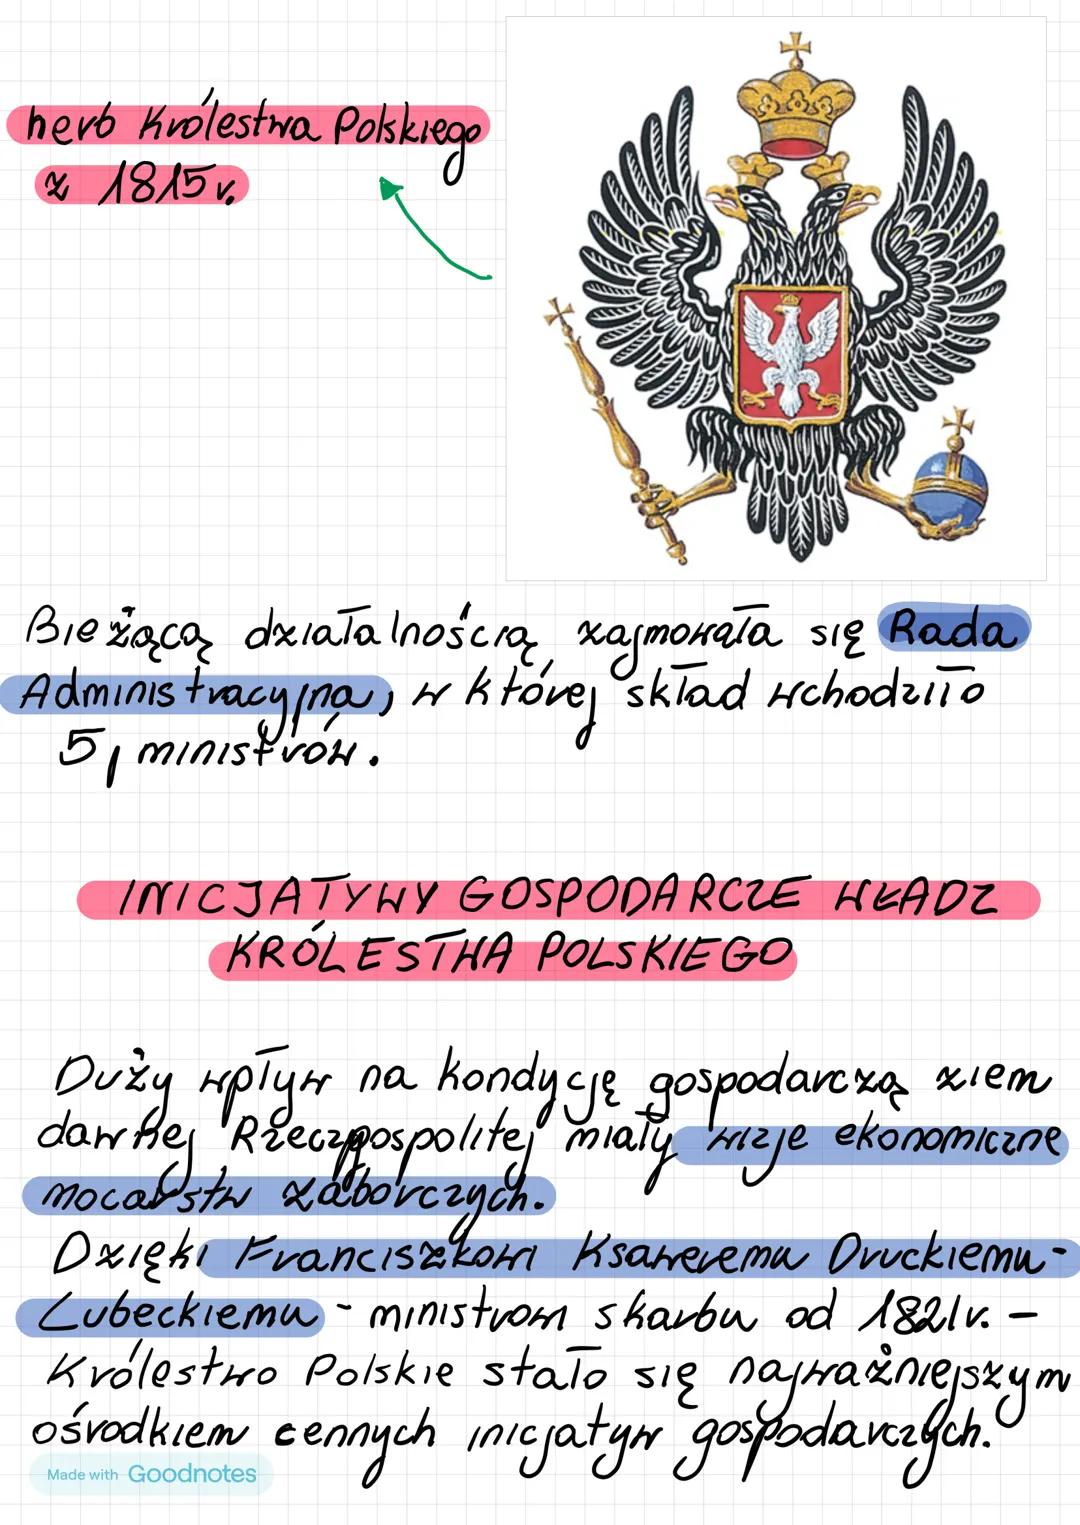 herb Królestwa Polskiego
z 1815r.
Bieżącą działalnością zajmowała się Rada
Administracyjna, w której skład wchodziło
5, ministrów.
INICJATYWY GOSPODARCZE WŁADZ
KRÓLESTWA POLSKIEGO
Duży wpływ na kondycję gospodarczą ziem
dawnej Rzeczpospolitej miały wizje ekonomiczne
mocarstw zaborczych.
Dzięki Franciszkowi Ksaweremu Druckiemu-
Lubeckiemu - ministrowi skarbu od 1821r. -
Królestwo Polskie stało się najważniejszym
ośrodkiem cennych inicjatyw gospodarczych.
Made with Goodnotes